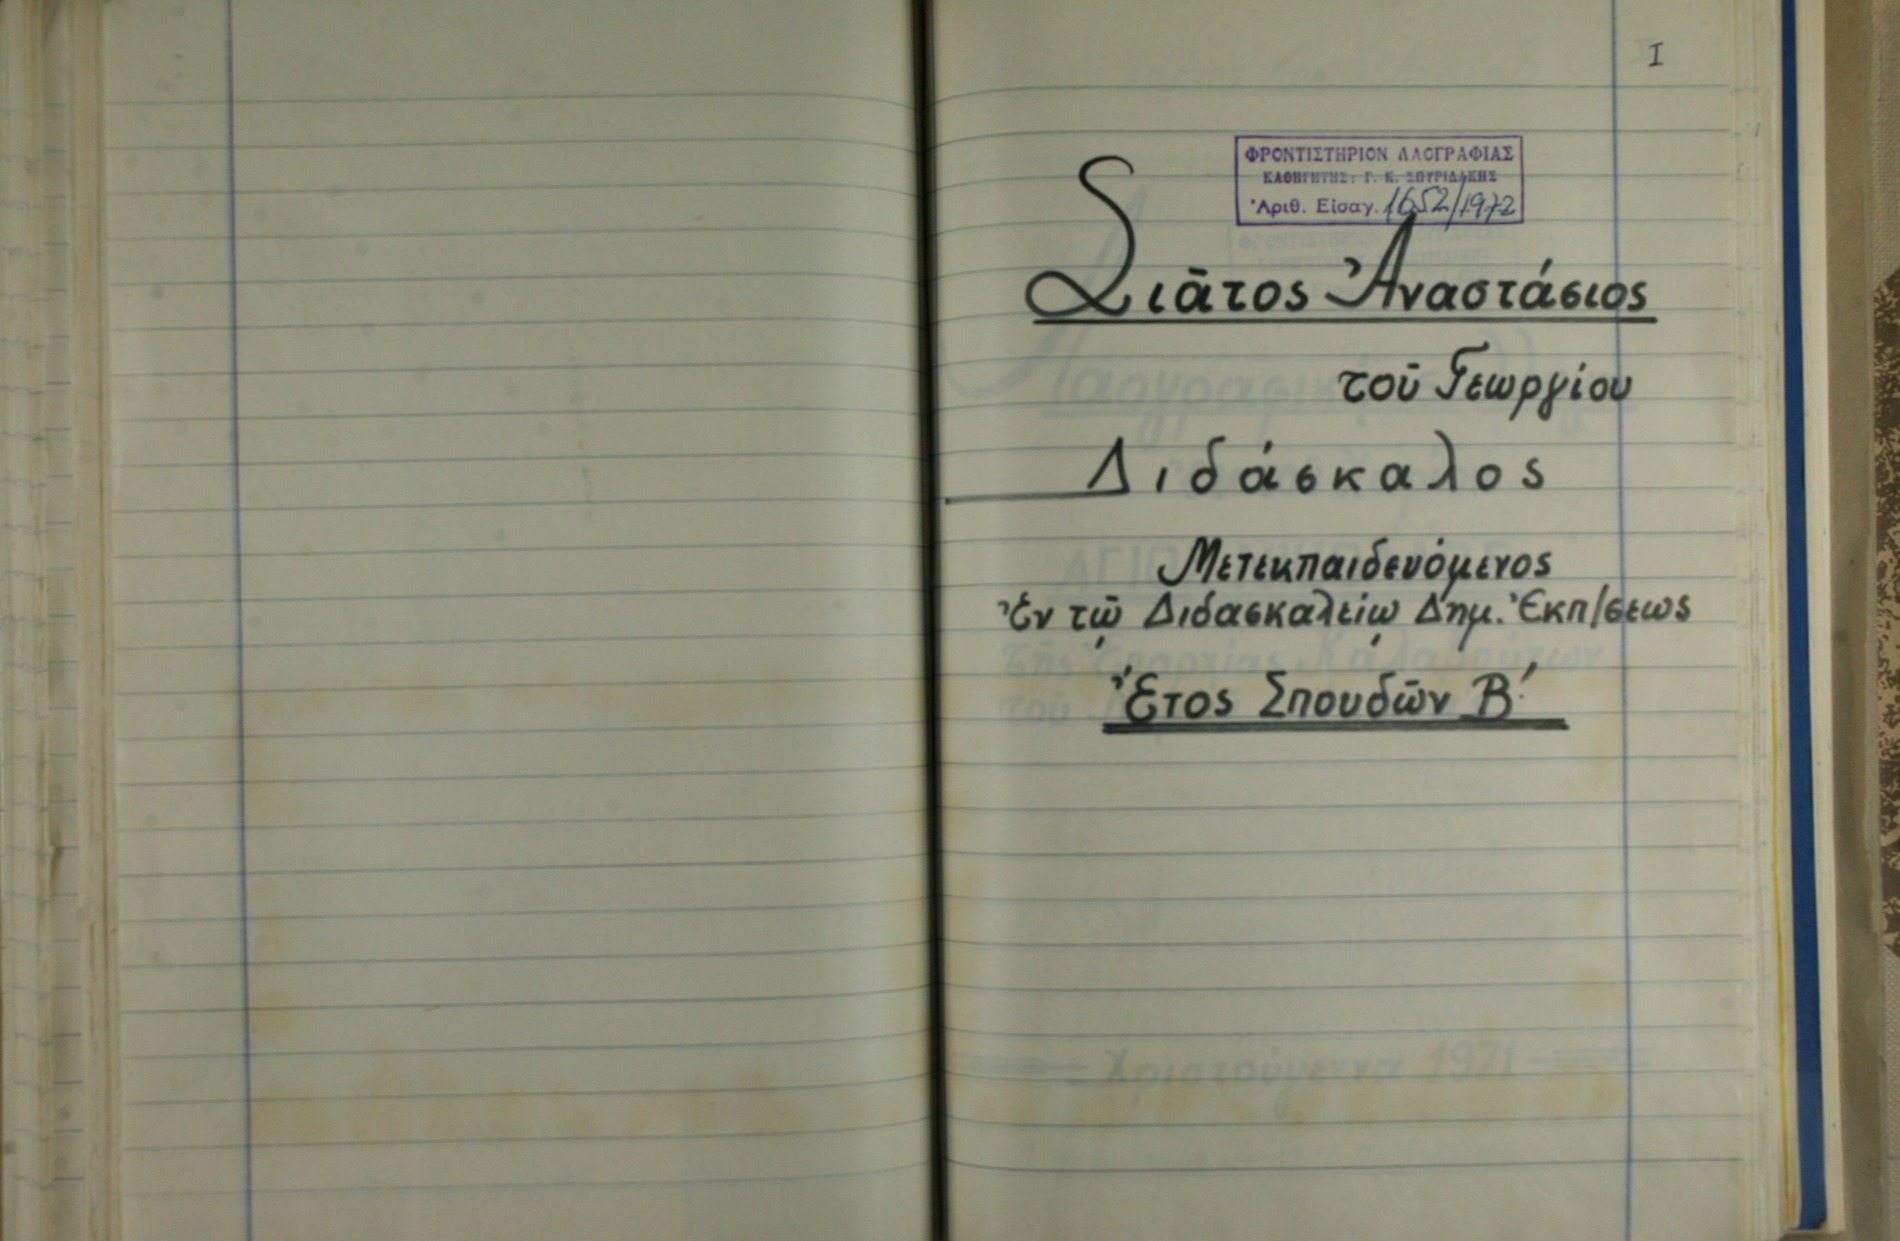 I
ΦΡΟΝΤΙΣΤΗΡΙΟΝ ΛΑΟΓΡΑΦΙΑΣ
ΚΑΘΗΓΗΤΗΣ: Γ. Κ. ΣΠΥΡΙΔΑΚΗΣ
Ἀριθ. Εἰσαγ. 1652/1972
Σιᾶτος Ἀναστάσιος
τοῦ Γεωργίου
Διδάσκαλος
Μετεκπαιδευόμενος
Ἐν τῷ Διδασκαλείῳ Δημ. Ἐκπ/σεως
Ἔτος Σπουδῶν Β΄
Χριστούγεννα 1971